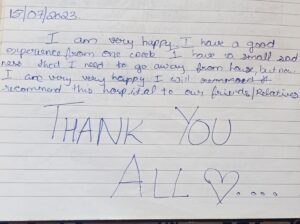 15/07/2023
I am very happy, I have a good
experience from one week. I have a small sad
ness that I need to go away from house, but now
I am very very happy I will
recommend this hospital to our friends/Relatives
THANK YOU
ALL ♡....